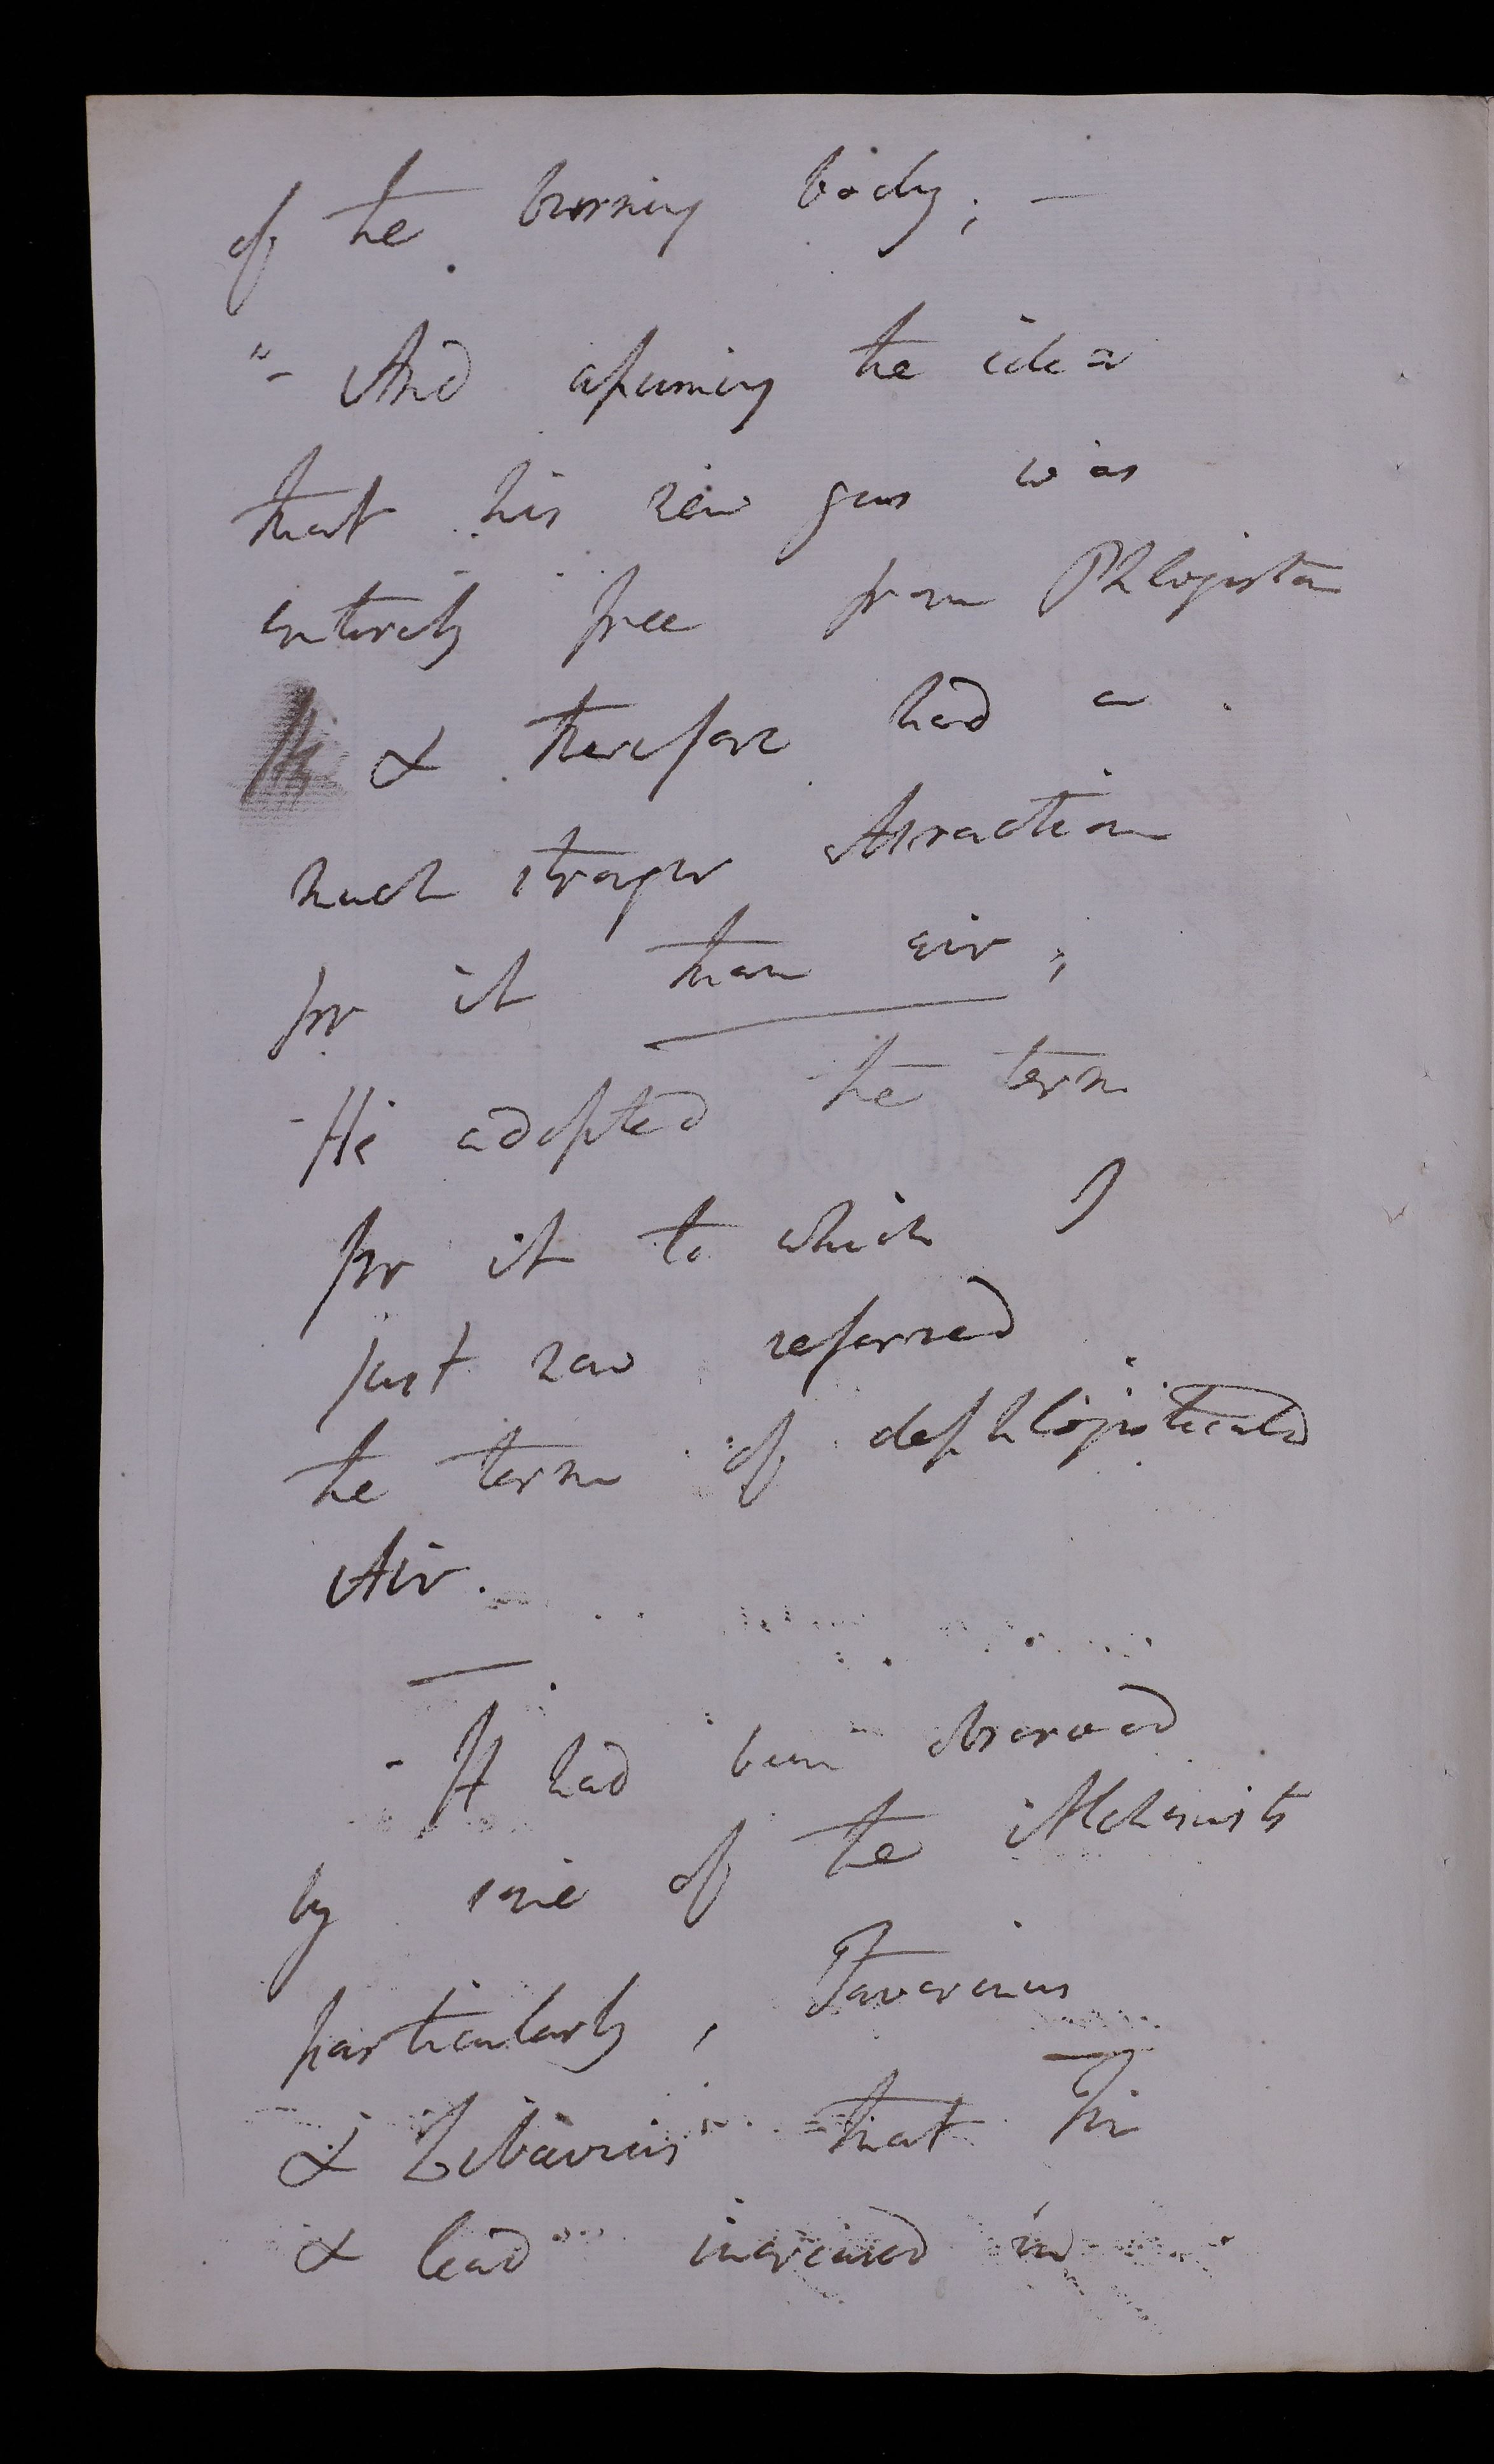 of the burning body; —
"- And assuming the idea
that his new gas was
entirely free from Phlogiston
& therefore had a
much stronger Attraction
for it than air;
- He adopted the term
for it to which I
just now referred
the term of dephlogisticated
Air.
- It had been observed
by some of the Alchemists
particularly, Taverinus
& Libavius that Tin
& lead increased in